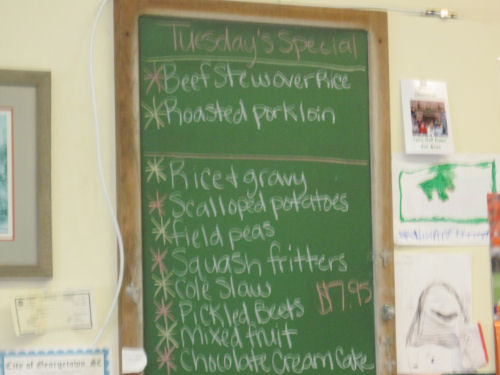 Tuesday's Special
* Beef Stew over Rice
* Roasted pork loin
* Rice + gravy
* Scalloped potatoes
* field peas
* Squash fritters
* Cole Slaw
$7.95
* Pickled Beets
* Mixed fruit
* Chocolate Cream Cake
City of Georgetown, SC